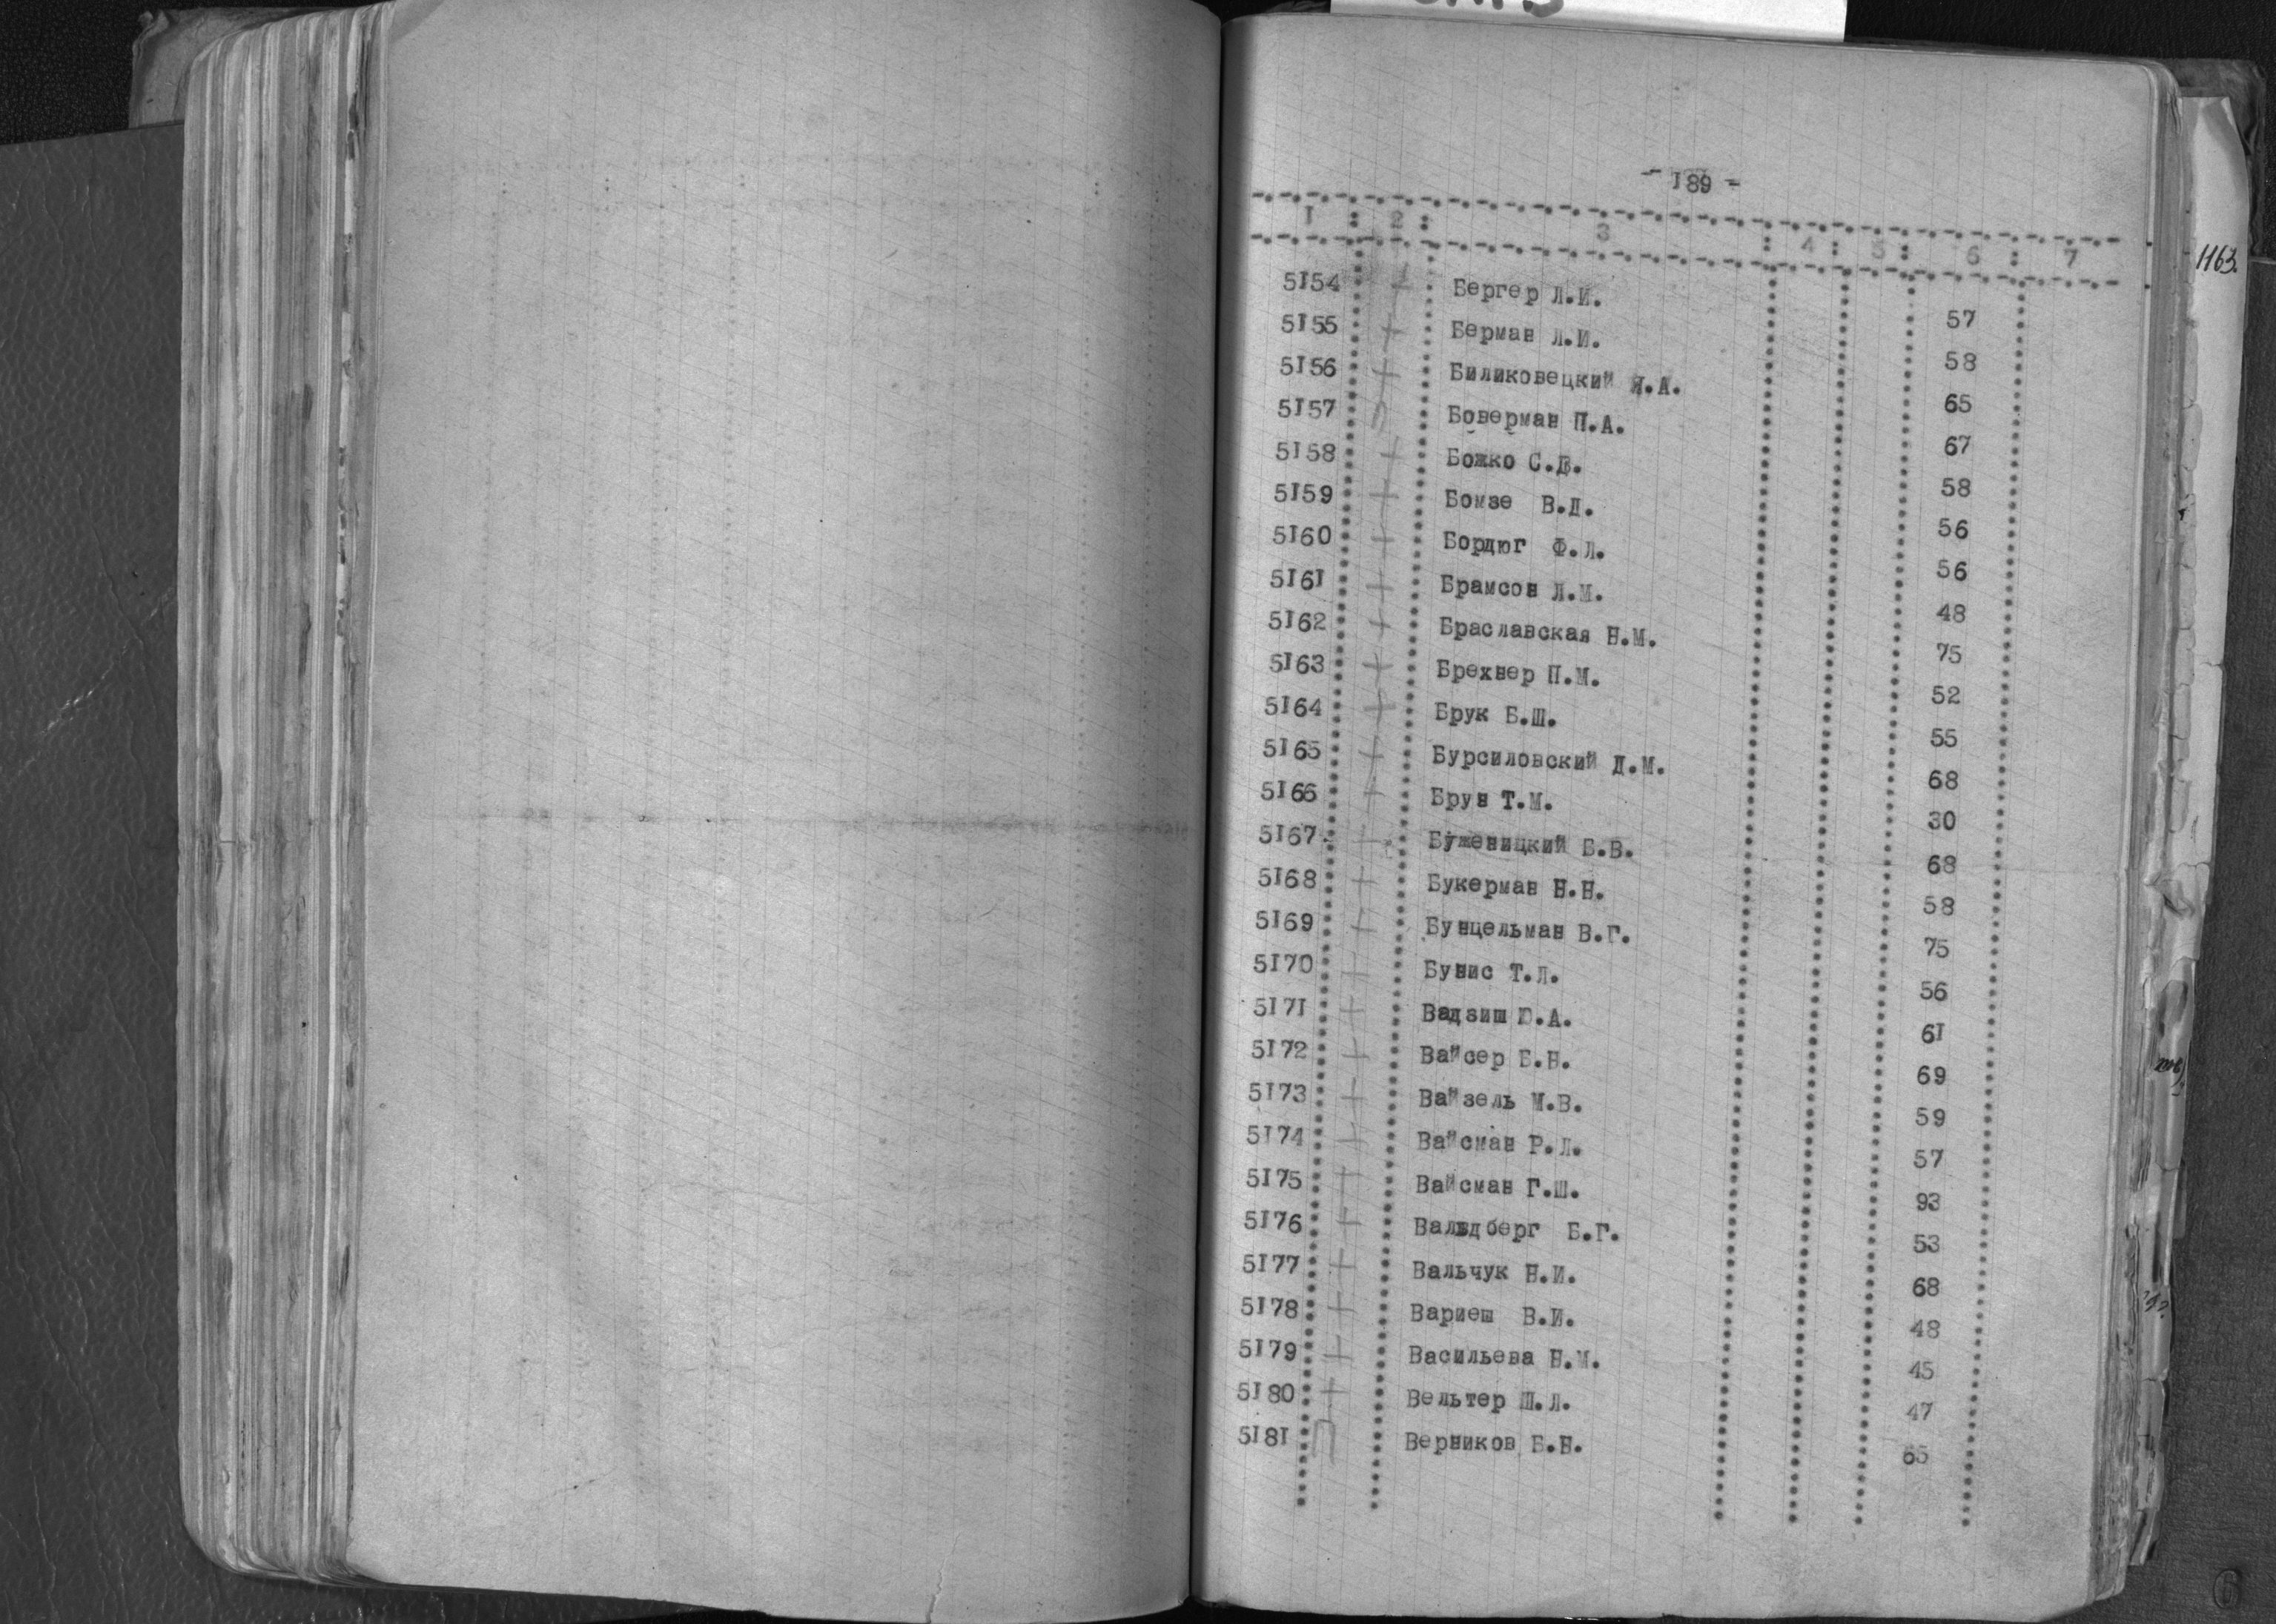 - I89 -
I : 2 : 3 : 4 : 5 : 6 : 7
II63.
5I54 + Бергер Л.И. 57
5I55 + Берман Л.И. 58
5I56 + Биликовецкий И.А. 65
5I57 П Боверман П.А. 67
5I58 + Божко С.Д. 58
5I59 + Бомзе В.Д. 56
5I60 + Бордюг Ф.Л. 56
5I6I + Брамсон Л.М. 48
5I62 + Браславская Н.М. 75
5I63 + Брехнер П.М. 52
5I64 + Брук Б.Ш. 55
5I65 + Бурсиловский Д.М. 68
5I66 + Брун Т.М. 30
5I67 + Буженицкий Б.В. 68
5I68 + Букерман Н.Н. 58
5I69 + Бунцельман В.Г. 75
5I70 + Бунис Т.Л. 56
5I7I + Вадзиш Ю.А. 6I
5I72 + Вайсер Б.Н. 69
5I73 + Вайзель М.В. 59
5I74 + Вайсман Р.Л. 57
5I75 + Вайсман Г.Ш. 93
5I76 + Вальдберг Б.Г. 53
5I77 + Вальчук Н.И. 68
5I78 + Вариеш В.И. 48
5I79 + Васильева Н.М. 45
5I80 + Вельтер Ш.Л. 47
5I8I П Верников Б.Н. 65